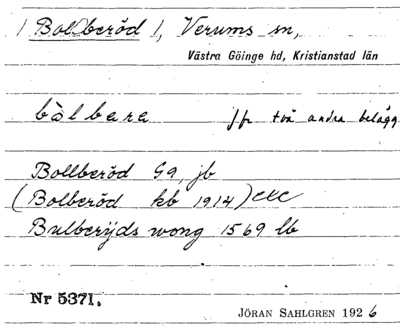 / Bollberöd /, Verums sn,
Västra Göinge hd, Kristianstad län
bòlbara jfr två andra belägg
Bollberöd G9, jb
(Bolberöd kb 1914) etc
Bulberÿds wong 1569 lb
Nr 5371.
JÖRAN SAHLGREN 1926